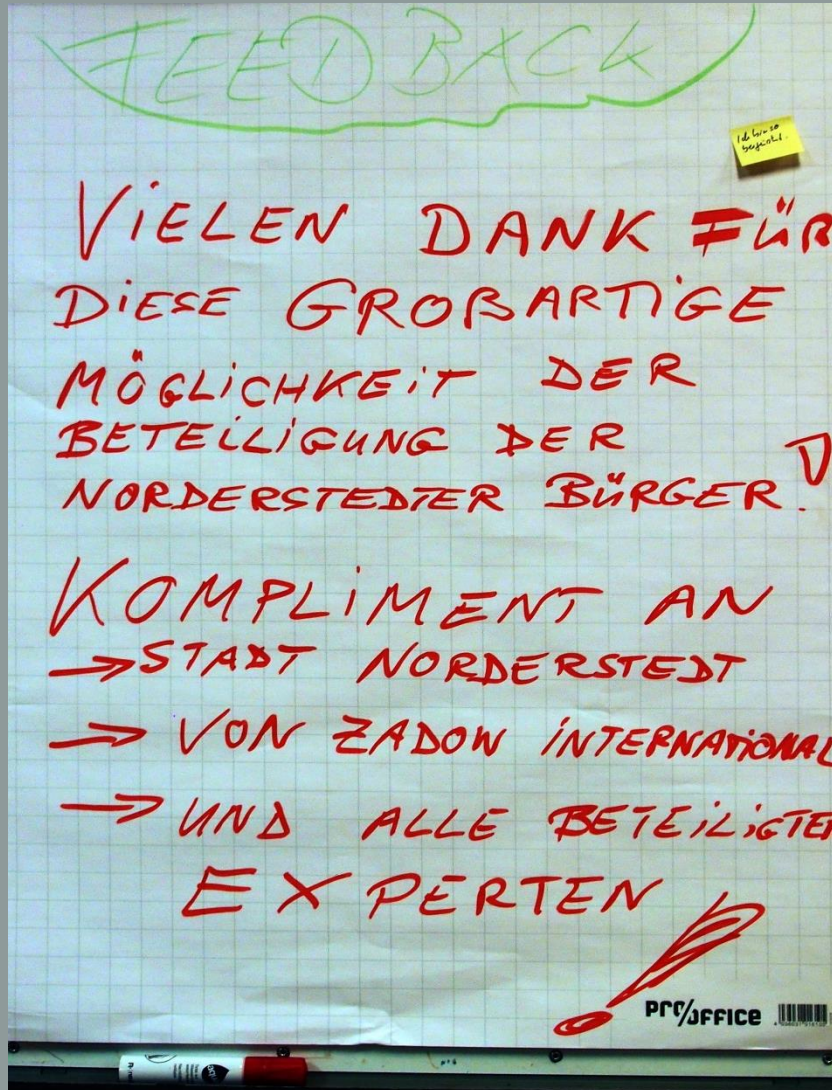 FEEDBACK
Ich bin so
begeistert.
VIELEN DANK FÜR
DIESE GROßARTIGE
MÖGLICHKEIT DER
BETEILIGUNG DER
NORDERSTEDTER BÜRGER!
KOMPLIMENT AN
→ STADT NORDERSTEDT
→ VON ZADOW INTERNATIONAL
→ UND ALLE BETEILIGTEN
EXPERTEN!
PRO/OFFICE